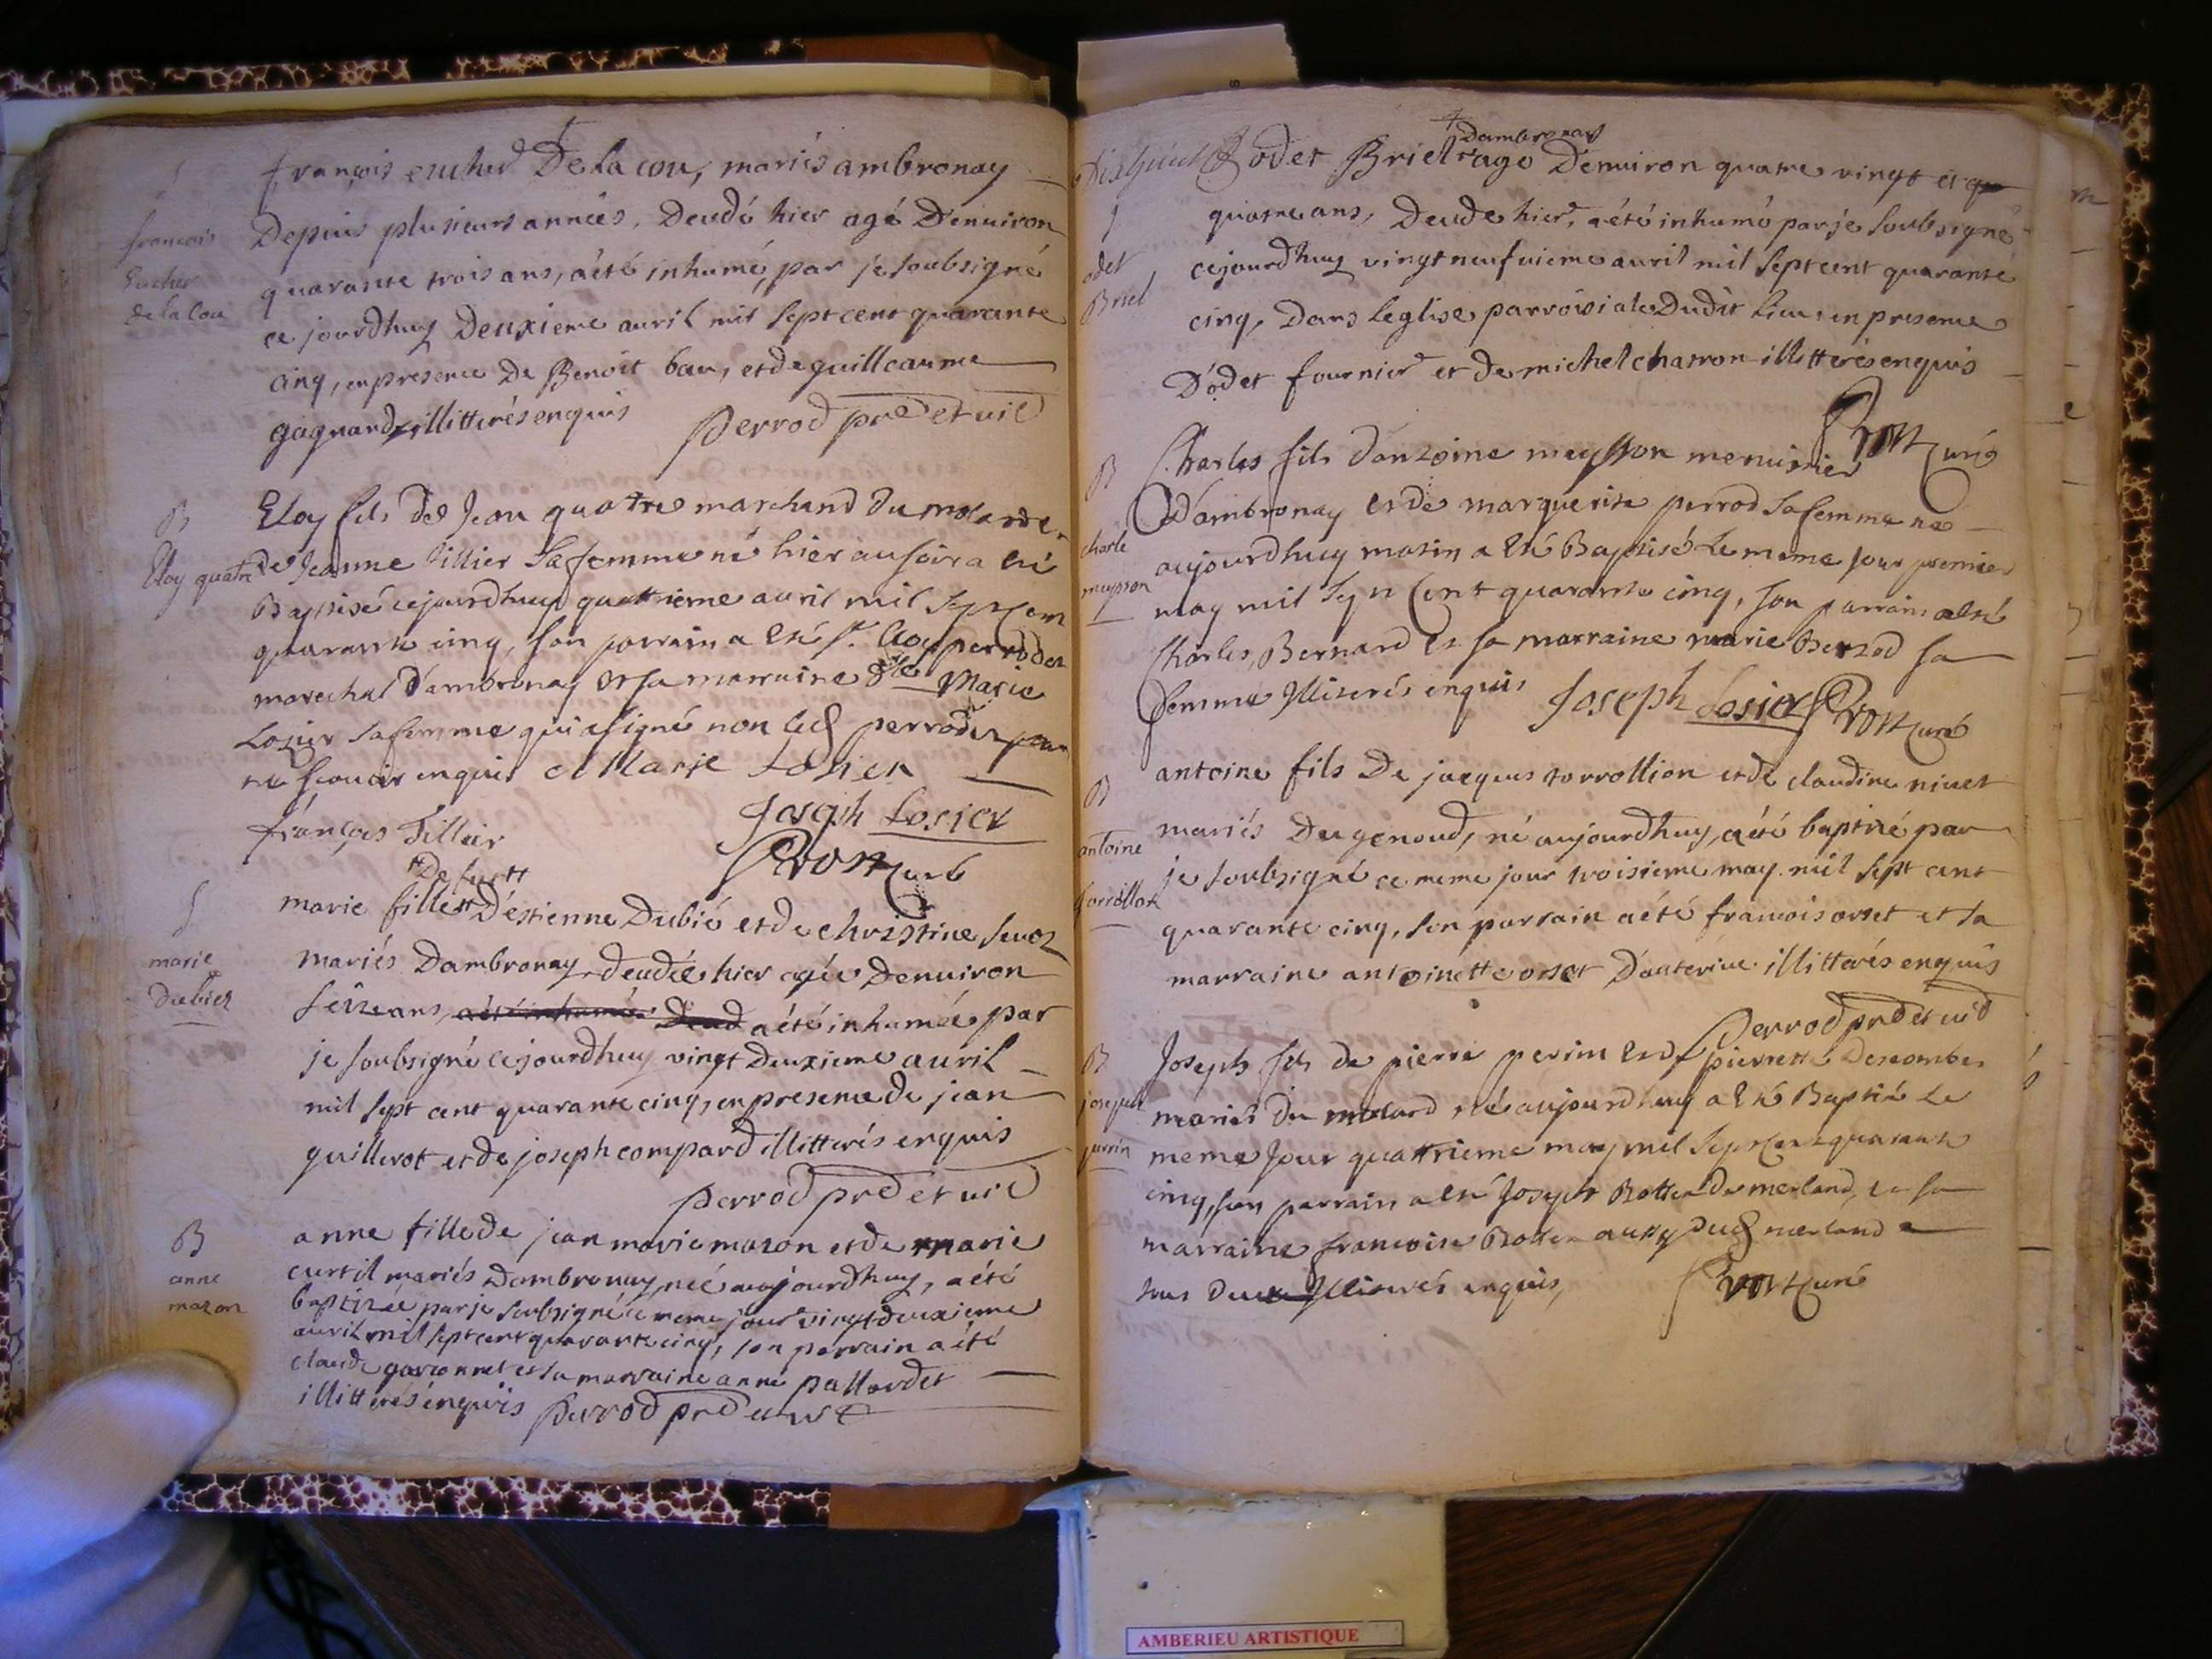 françois eucher De la cou, mariés ambronay
françois
Eucher
de la Cou
Depuis plusieurs années, Decédé hier agé D'enuiron
quarante trois ans, a été inhumé, par je soubsigné
ce jourdhuy Deuxieme auril mil sept cent quarante
cinq, en presence De Benoit bau, et de guillaume
gagnard, illitterés enquis Perrod pre et vic
B
Eloy quatre
Eloy fils de Jean quatre marchand du molard et
de Jeanne Tillier Sa femme né hier au soir a été
Baptisé cejourdhuy quattrieme auril mil sept cent
quarante cinq, son parrain a été sr. Eloy perrodet
marechal d'ambronay et sa marraine dlle Marie
Losier sa femme qui a signé non led perrodet pour
ne scauoir enquis Marie Losier
françois Tillier
Joseph Losier
Pron curé
S
marie
dubier
Defunt
marie fille D'estienne Dubié et de christine
mariés Dambronay decedée hier agée Denuiron
seize ans, a été inhumée a été inhumée par
je soubsigné cejourdhuy vingt Deuxieme auril
mil sept cent quarante cinq, en presence de jean
quillerot et de joseph compard illitterés enquis
Perrod pre et vic
B
anne
mazon
anne fille de jean marie mazon et de marie
curtil mariés Dambronay, née aujourdhuy, a été
baptizée par je soubsigné ce meme jour vingt deuxieme
auril mil sept cent quarante cinq, son parrain a été
claude garconnet et sa marraine anne pallordet
illitterés enquis Perrod pre et vic
S
odet
Briel
odet Briel dambronay agé Denuiron quatre vingt et
quatre ans, Decedé hier, a été inhumé par je soubsigné
cejourdhuy vingt neufuieme auril mil sept cent quarante
cinq, Dans leglise parroisiale Dudit lieu, en presence
D'odet fournier et de michel charron illitterés enquis
Pron curé
B
charle
meysson
Charles fils d'antoine meysson menuisier
D'ambronay et de marguerite perrod sa femme né
aujourdhuy matin a été Baptisé Le meme jour premier
may mil sept Cent quarante cinq, son parrain a été
Charles Bernard et sa marraine marie Berrod sa
femme illiterés enquis Joseph Losier Pron curé
B
antoine
torrollion
antoine fils De jacques torrollion et de claudine niuet
mariés Du genoud, né aujourdhuy, a été baptizé par
je soubsigné ce meme jour troisieme may mil sept cent
quarante cinq, son parrain a été francois orset et sa
marraine antoinette orset D'auterive illitterés enquis
Perrod pre et vic
B
joseph
perrin
Joseph fils de pierre perrin et de pierrette Descombes
mariés du molard né aujourdhuy a été Baptisé Le
meme Jour quattrieme may mil Sept Cent quarante
cinq, son parrain a été Joseph Bottex du merland, et sa
marraine francoise Bottex aussy dud merland
tous deux illiterés enquis, Pron curé
AMBERIEU ARTISTIQUE